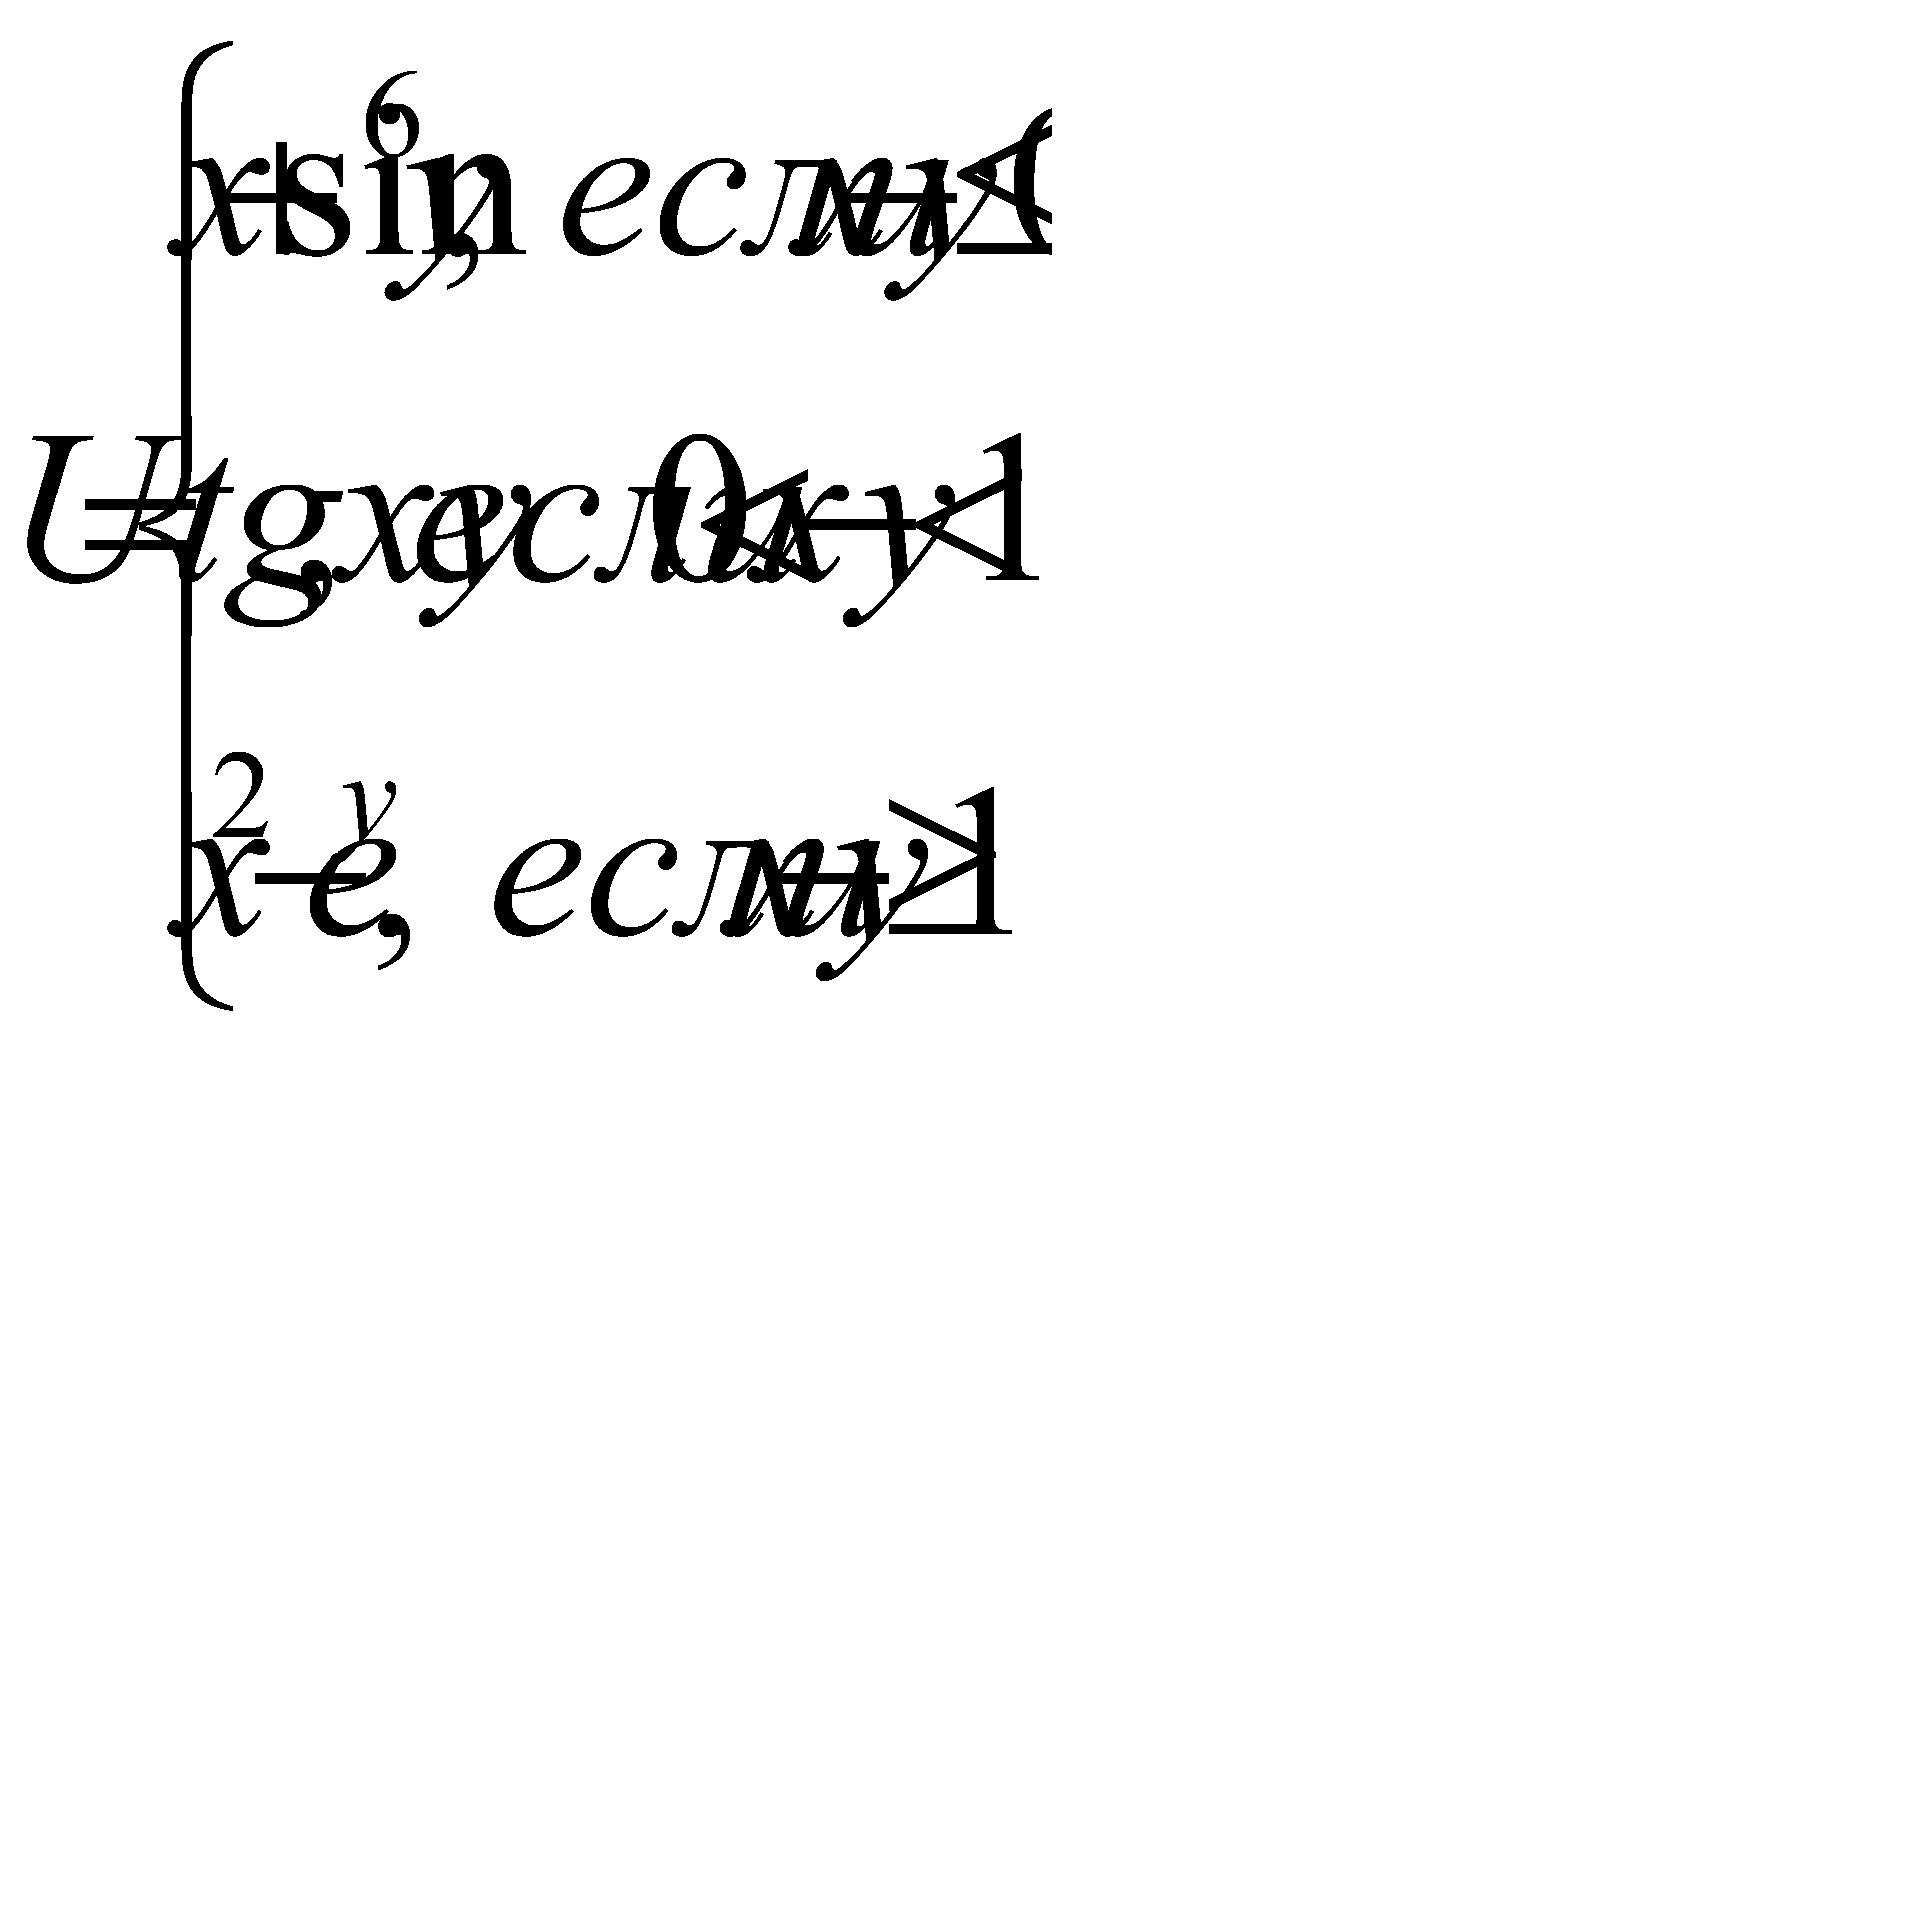 x + sin⁶ y, если x − y ≤ 0
U = { tgxy если 0 < x − y < 1
x² − eʸ, если x − y ≥ 1